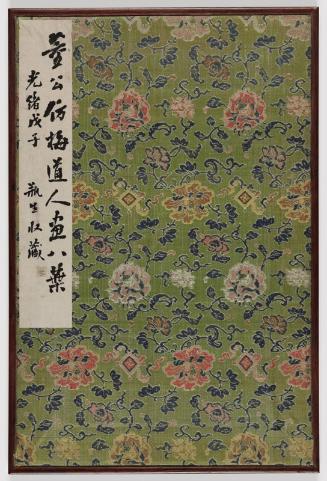 董公仿梅道人画八葉
光緒戊子
瓶生收藏